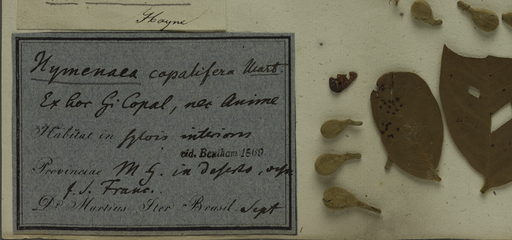 Hayne
Hymenaea copalifera Mart.
Ex hoc Gi Copal, nec Anime
Habitat in sylvis interioris
vid. Bentham 1869
Provinciae M. G. in deserto,
f. S. Franc.
Dr. Martius Iter Brasil. Sept